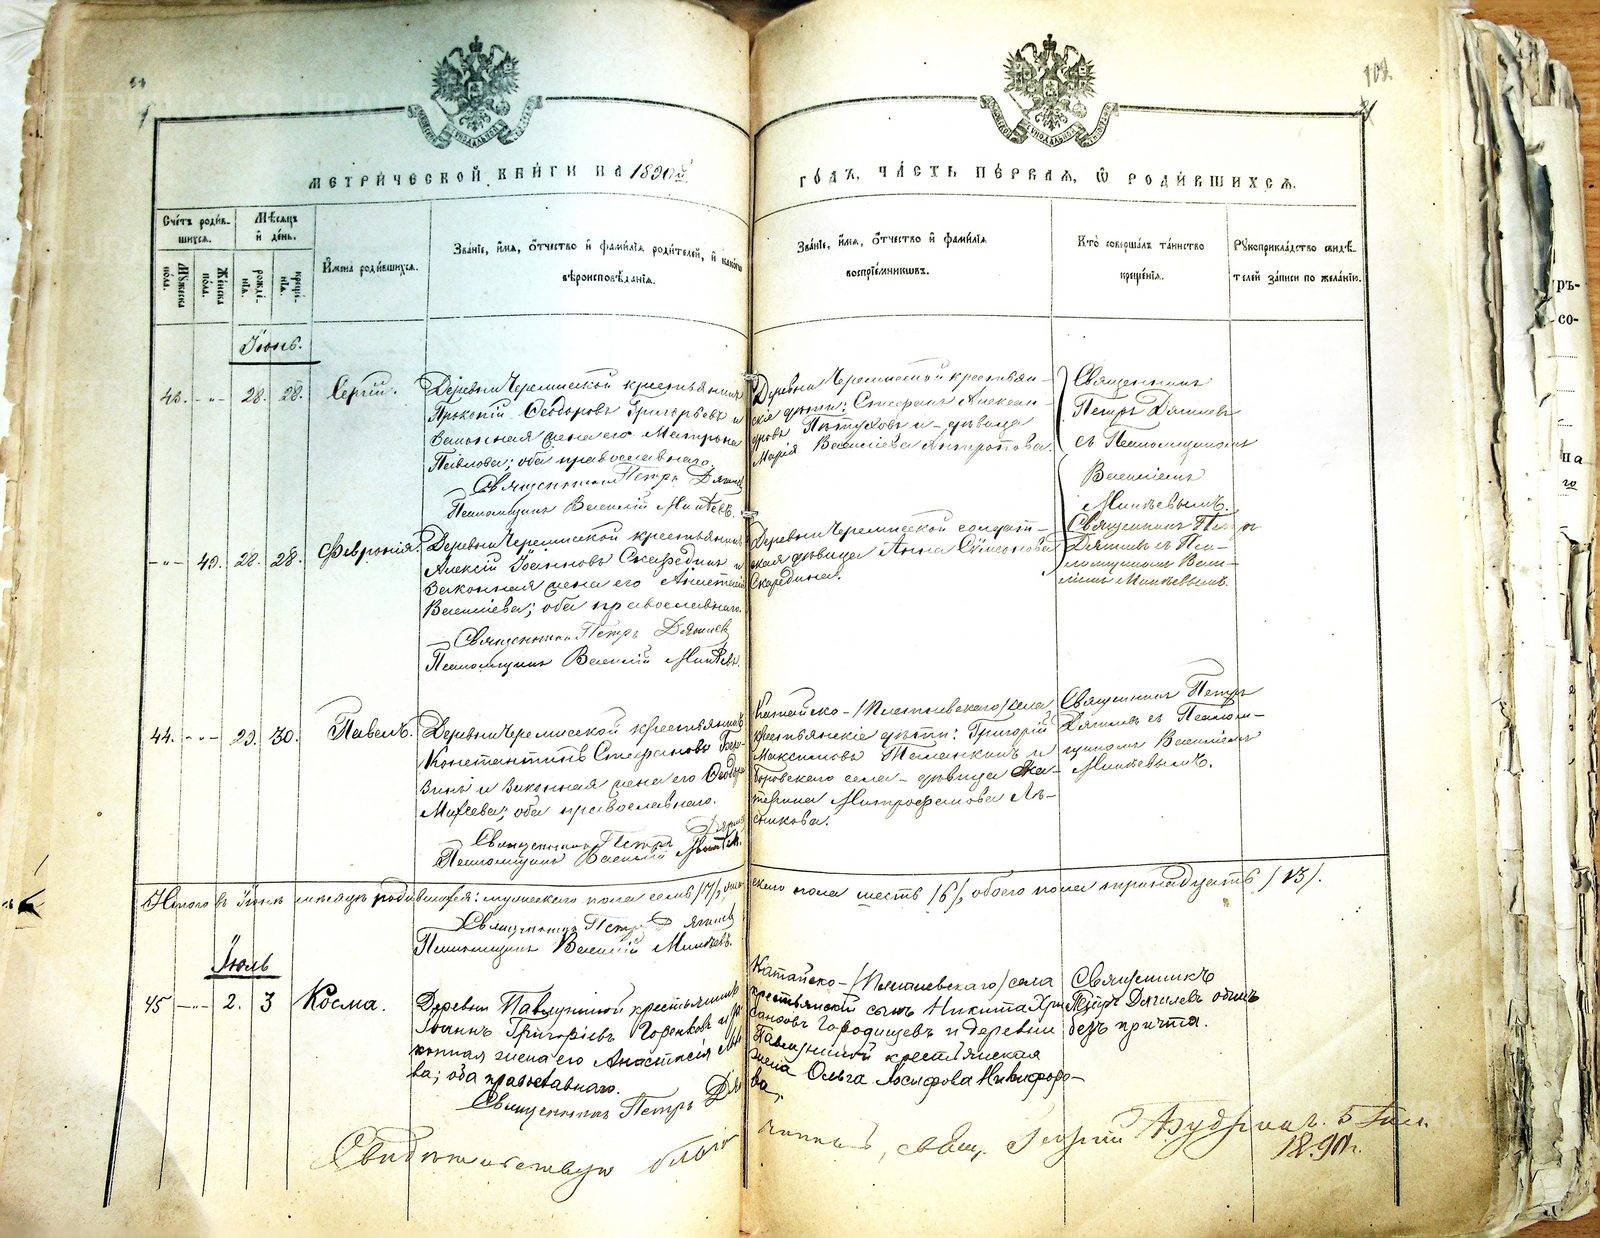 102
21
МЕТРИЧЕСКОЙ КНИГИ НА 1890й
ГОДЪ, ЧАСТЬ ПЕРВАЯ, Ѡ РОДИВШИХСЯ.
Счетъ родив-
шихся.
Мѣсяцъ
и день.
Мужеска
пола.
Женска
пола.
рожде-
нія.
креще-
нія.
Имена родившихся.
Званіе, имя, отчество и фамилія родителей, и какого
вѣроисповѣданія.
Званіе, имя, отчество и фамилія
воспріемниковъ.
Кто совершалъ таинство
крещенія.
Рукоприкладство свидѣ-
телей записи по желанію.
Іюнь.
28. 28. Сергій.
Деревни Черемисской крестьянинъ
Прокопій Ѳеодоровъ Григорьевъ и
законная жена его Матрона
Павлова; оба православнаго.
Священникъ Петръ Дягилев
Псаломщикъ Василій Минѣевъ.
Деревни Черемисской крестьян-
скіе дѣти: Стефанъ Алексан-
дровъ Пѣтуховъ и дѣвица
Марія Васильева Антропова.
Священникъ
Петръ Дягилевъ
съ Псаломщикомъ
Василіемъ
Минѣевымъ.
28. 28. Февронія.
Деревни Черемисской крестьянинъ
Алексій Іоанновъ Скарединъ и
законная жена его
Васильева; оба православнаго.
Священникъ Петръ Дягилев
Псаломщикъ Василій Минѣевъ.
Деревни Черемисской солдат-
ская дѣвица Анна Сѵмеонова
Скаредина.
Священникъ Петръ
Дягилевъ съ Пса-
ломщикомъ Васи-
ліемъ Минѣевымъ.
44. 29. 30. Павелъ.
Деревни Черемисской крестьянинъ
Константинъ Стефановъ
и законная жена его Ѳеодора
Михеева; оба православнаго.
Священникъ Петръ Дягилев
Псаломщикъ Василій Минѣевъ.
Катайско-/Плотниевского/ села
крестьянскіе дѣти: Григорій
Максимовъ и
Боровского села дѣвица Ека-
терина Митрофанова Лѣ-
сникова.
Священникъ Петръ
Дягилевъ съ Псалом-
щикомъ Василіемъ
Минѣевымъ.
Итого въ Іюнѣ мѣсяцѣ родившихся: мужескаго пола семь /7/, жен-
скаго пола шесть /6/, обоего пола тринадцать /13/.
Священникъ Петръ Дягилев
Псаломщикъ Василій Минѣевъ.
Іюль
45 2. 3 Косма.
Деревни крестьянинъ
Іоаннъ Григорьевъ и за-
конная жена его Анастасія
ва; оба православнаго.
Священникъ Петръ
Катайско- села
крестьянскій сынъ Никита
Городищевъ и деревни
крестьянская
жена Ольга Іосифова Никифоро-
ва.
Священникъ
Петръ Дягилевъ одинъ
безъ причта.
Свидѣтельствую
свящ. Георгій 5 Іюля
1890 г.